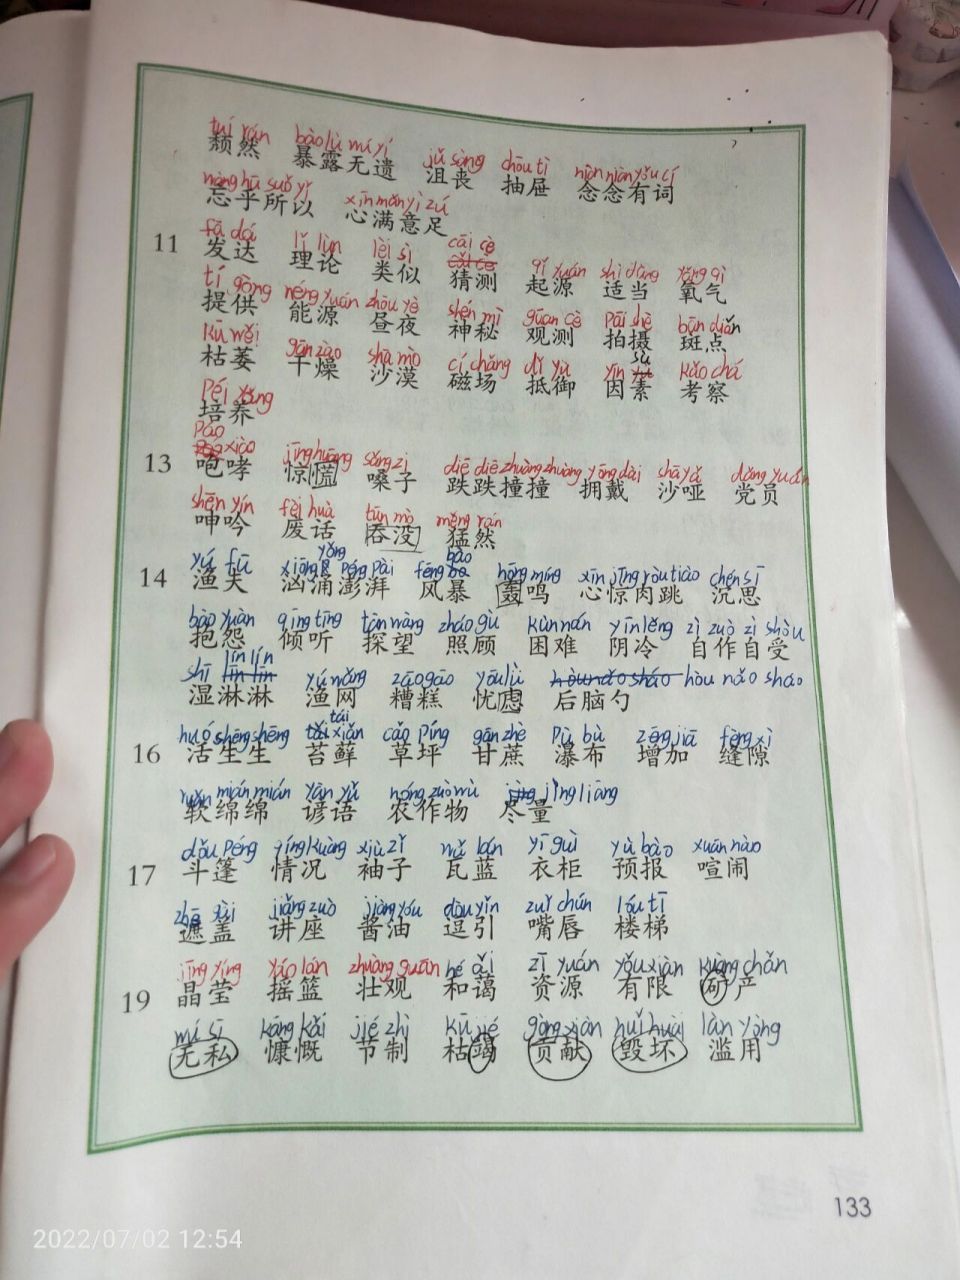 tuí rán bàolù mí yí jǔ sàng chōu tì niàn niàn yǒu cí
颓然 暴露无遗 沮丧 抽屉 念念有词
wàng hū suǒ yǐ xīn mǎn yì zú
忘乎所以 心满意足
fā dá lǐ lùn lèi sì cāi cè qǐ yuán shì dàng yǎng qì
11 发达 理论 类似 猜测 起源 适当 氧气
tí gòng néng yuán zhòu yè shén mì guān cè pāi shè bān diǎn
提供 能源 昼夜 神秘 观测 拍摄 斑点
kū wěi gān zào shā mò cí chǎng dǐ yù yīn sù kǎo chá
枯萎 干燥 沙漠 磁场 抵御 因素 考察
péi yǎng
培养
páo xiào jīng huāng sǎng zi diē diē zhuàng zhuàng yōng dài shā yǎ dǎng yuán
13 咆哮 惊慌 嗓子 跌跌撞撞 拥戴 沙哑 党员
shēn yín fèi huà tūn mò měng rán
呻吟 废话 吞没 猛然
yú fū xiōng yǒng péng pài fēng bào hōng míng xīn jīng ròu tiào chén sī
14 渔夫 汹涌澎湃 风暴 轰鸣 心惊肉跳 沉思
bào yuàn qīng tīng tàn wàng zhào gù kùn nán yīn lěng zì zuò zì shòu
抱怨 倾听 探望 照顾 困难 阴冷 自作自受
shī lín lín yú wǎng zāo gāo yōu lǜ hòu nǎo sháo
湿淋淋 渔网 糟糕 忧虑 后脑勺
huó shēng shēng tái xiǎn cǎo píng gān zhè pù bù zēng jiā fèng xì
16 活生生 苔藓 草坪 甘蔗 瀑布 增加 缝隙
ruǎn mián mián yàn yǔ nóng zuò wù jǐng liàng
软绵绵 谚语 农作物 尽量
dǒu péng qíng kuàng xiù zǐ wǎ lán yī guì yù bào xuān nào
17 斗篷 情况 袖子 瓦蓝 衣柜 预报 喧闹
zhē gài jiǎng zuò jiàng yóu dòu yǐn zuǐ chún lóu tī
遮盖 讲座 酱油 逗引 嘴唇 楼梯
jīng yíng yáo lán zhuàng guān hé ǎi zī yuán yǒu xiàn kuàng chǎn
19 晶莹 摇篮 壮观 和蔼 资源 有限 矿产
mí sī kāng kǎi jié zhì kū jié gòng xiàn huǐ huài làn yòng
无私 慷慨 节制 枯竭 贡献 毁坏 滥用
133
2022/07/02 12:54